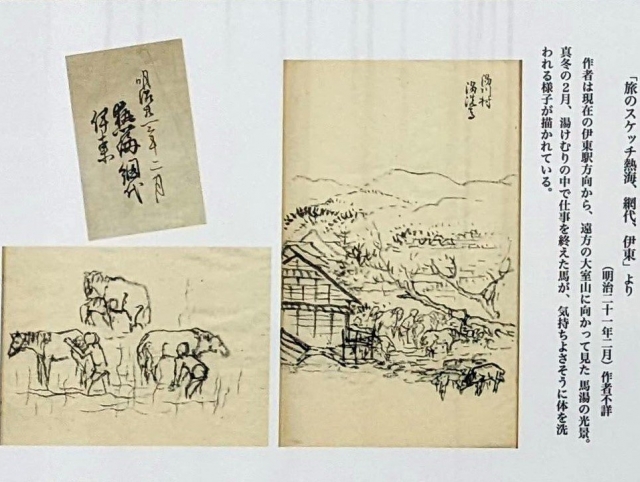 「旅のスケッチ熱海、網代、伊東」より
（明治二十一年二月）作者不詳
作者は現在の伊東駅方向から、遠方の大室山に向かって見た馬湯の光景。
真冬の２月、湯けむりの中で仕事を終えた馬が、気持ちよさそうに体を洗
われる様子が描かれている。
湯川村
明治廿一年二月
熱海網代
伊東